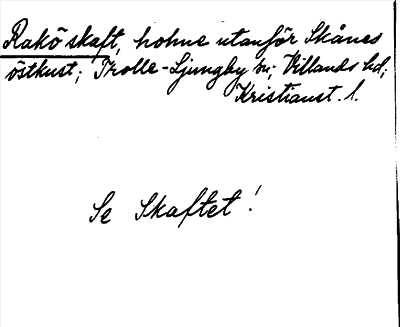 Rakö skaft, holme utanför Skånes
östkust; Trolle-Ljungby sn; Villands hd;
Kristianst. l.
Se Skaftet!